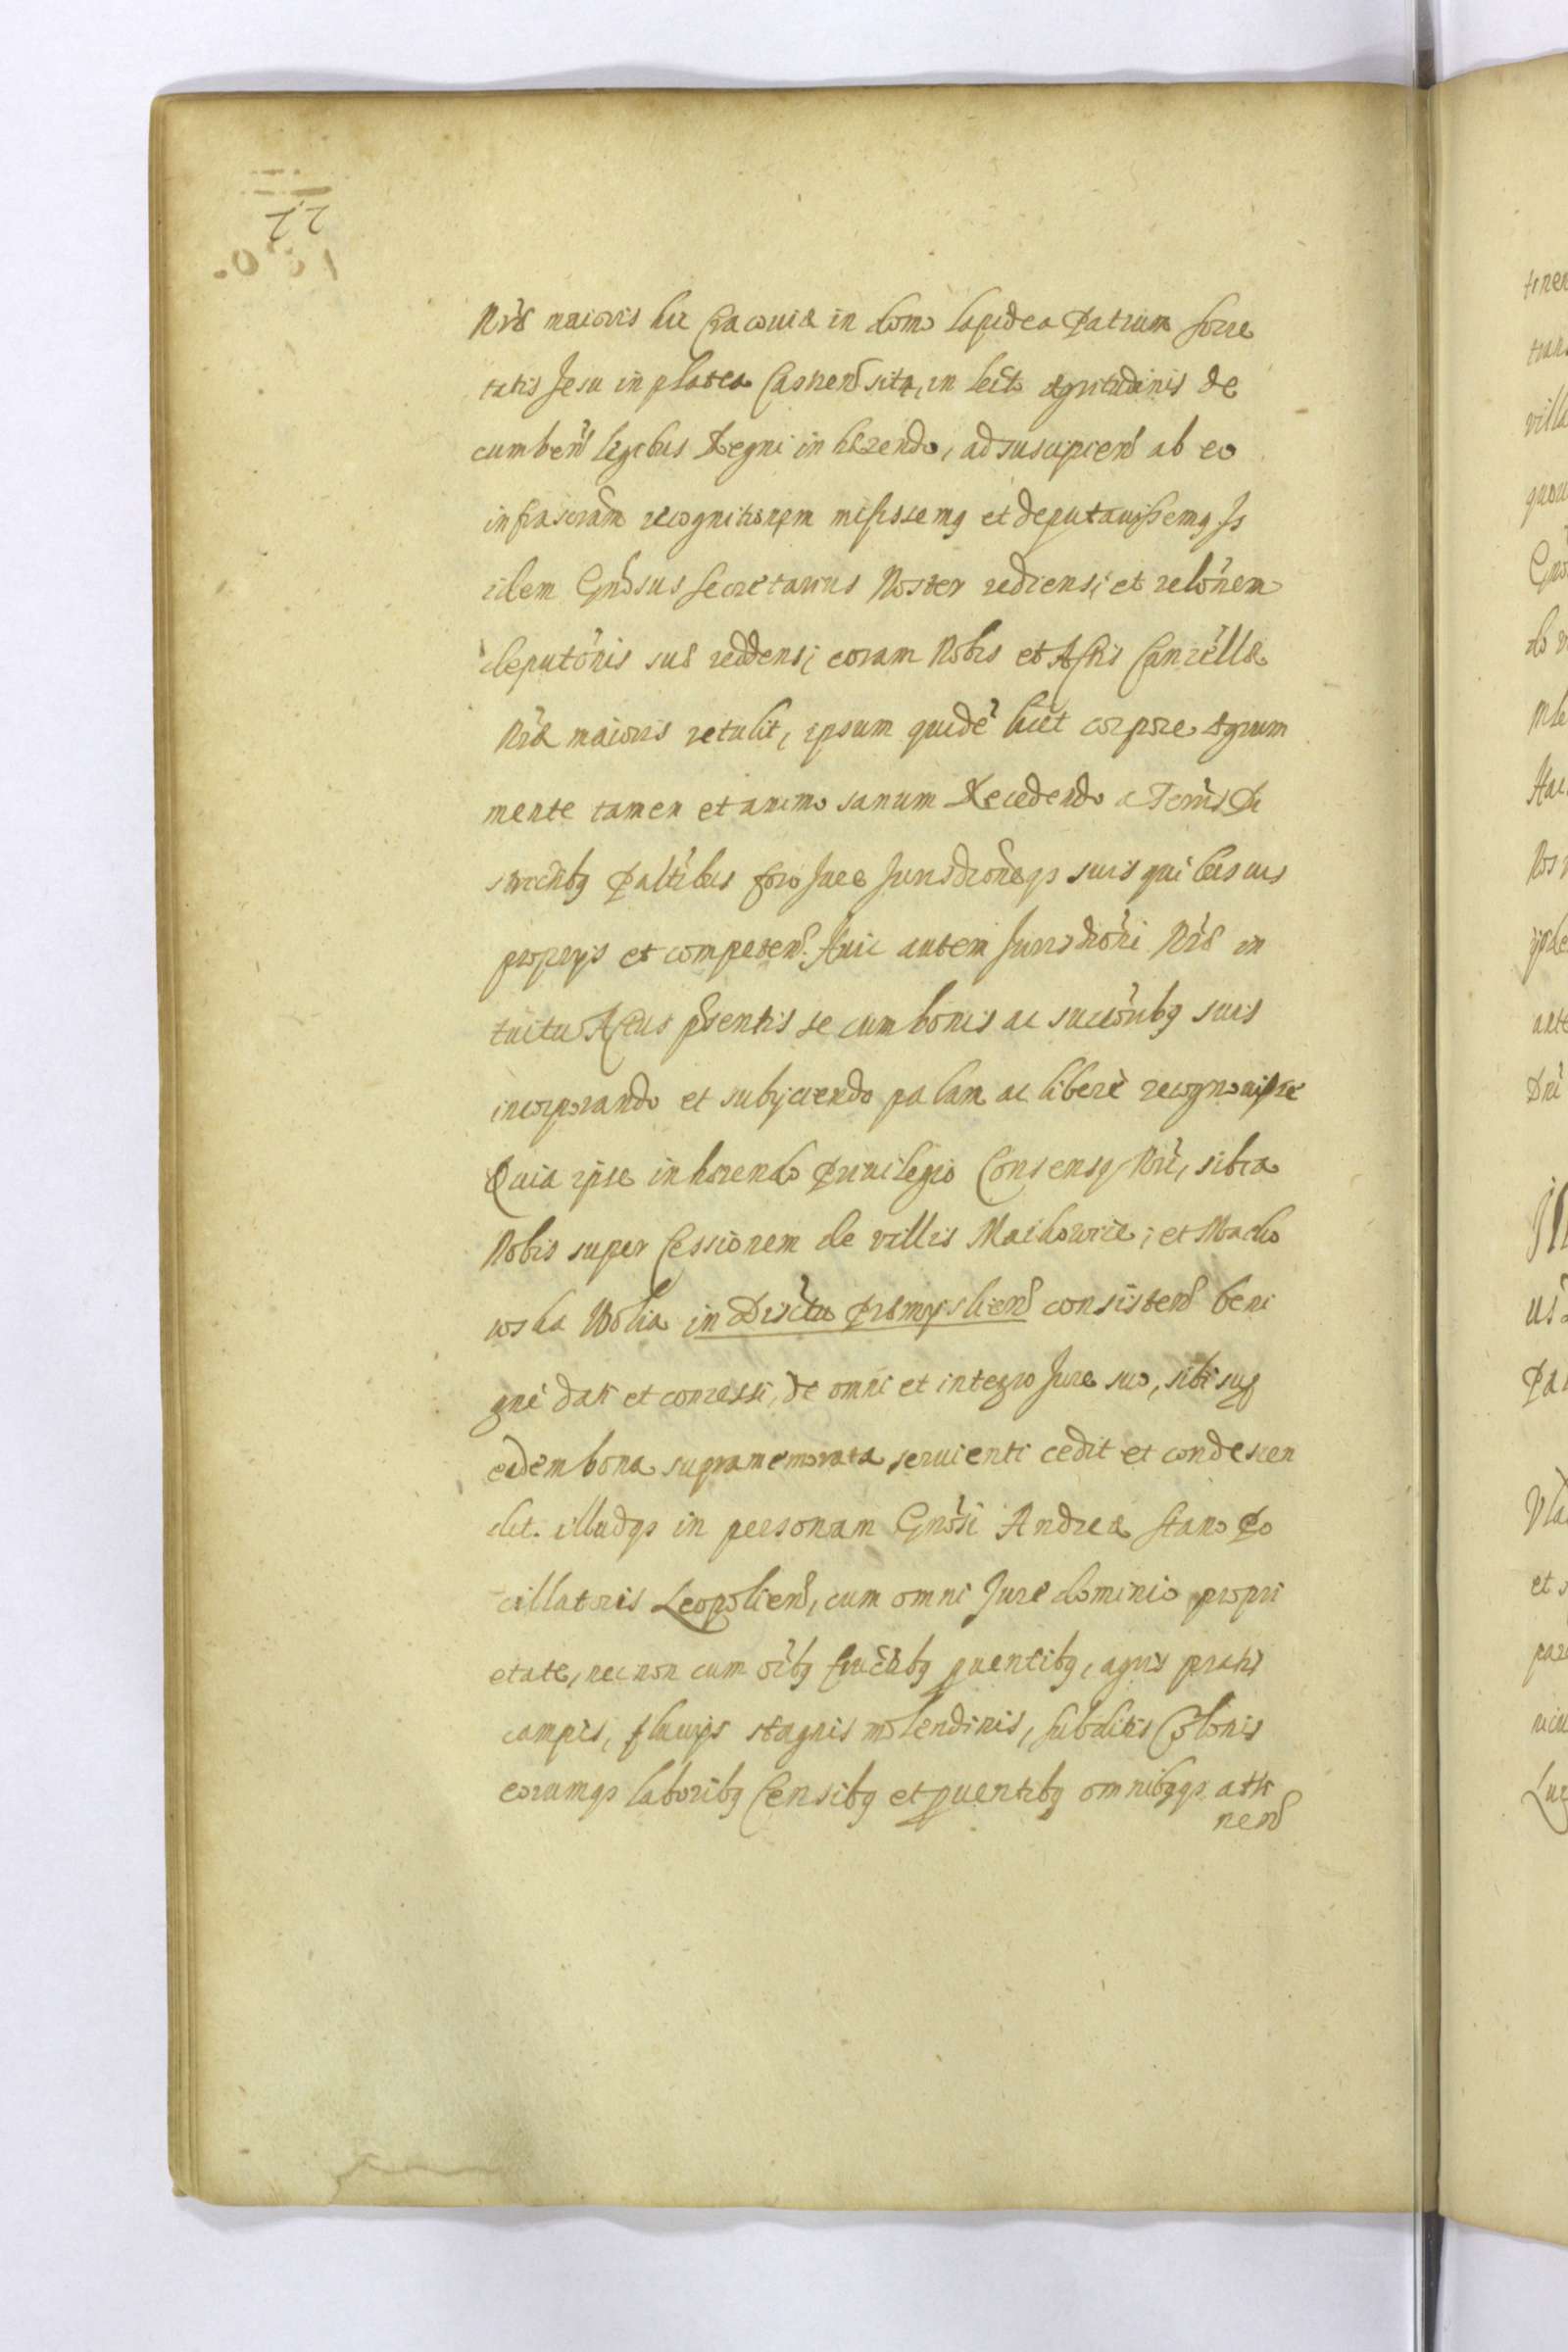 Nræ maioris hic Cracoviæ in domo lapidea Patrum Socie
tatis Jesu in platea Castren sita, in lecto ægritudinis de
cumben legibus Regni inhærendo, ad suscipien ab eo
infrascram recognitionem misissemq et deputavissemq Is
idem Gnosus Secretarius Noster rediens; et relonem
deputonis suæ reddens; coram Nobis et Actis Cancellæ
Nræ maioris retulit, ipsum quidē licet corpore ægrum
mente tamen et animo sanum Recedendo a Terris Di
strictibq Palatibus foro Jure Jurisdroneqs suis quibusuis
proprijs et competen. Huic autem Jurisdroni Nræ in
tuitu Actus psentis se cum bonis ac succonibq suis
incorporando et subijciendo palam ac liberè recognouisse
Quia ipse inhærendo Priuilegio Consensq Nri, sibi a
Nobis super Cessionem de villis Machowice; et Macho
wska Wolia in Distctu Præmyslien consisten beni
gnè dati et concessi, de omni et integro Jure suo, sibi sup
eadem bona supramemorata seruienti cedit et condescen
dit. illudqs in personam Gnosi Andreæ Stano Po
cillatoris Leopolien, cum omni Jure dominio propri
etate, nec non cum oibq fructibq puentibq, agris pratis
campis, fluuijs stagnis molendinis, subditis Colonis
eorumqs laboribq Censibq et puentibq omnibqqs atti
nen